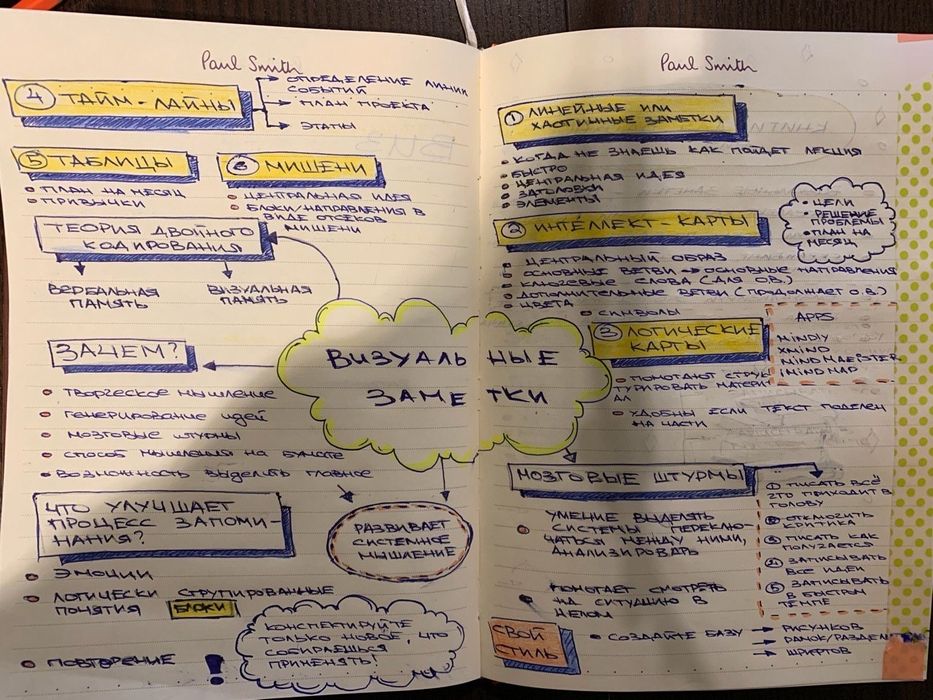 Paul Smith
4 ТАЙМ-ЛАЙНЫ
ОПРЕДЕЛЕНИЕ ЛИНИИ
СОБЫТИЙ
ПЛАН ПРОЕКТА
ЭТАПЫ
5 ТАБЛИЦЫ
ПЛАН НА МЕСЯЦ
ПРИВЫЧКИ
6 МИШЕНИ
ЦЕНТРАЛЬНАЯ ИДЕЯ
БЛОКИ/НАПРАВЛЕНИЯ В
ВИДЕ ОТСЕКОВ
МИШЕНИ
ТЕОРИЯ ДВОЙНОГО
КОДИРОВАНИЯ
ВЕРБАЛЬНАЯ
ПАМЯТЬ
ВИЗУАЛЬНАЯ
ПАМЯТЬ
ВИЗУАЛЬНЫЕ
ЗАМЕТКИ
ЗАЧЕМ?
ТВОРЧЕСКОЕ МЫШЛЕНИЕ
ГЕНЕРИРОВАНИЕ ИДЕЙ
МОЗГОВЫЕ ШТУРМЫ
СПОСОБ МЫШЛЕНИЯ НА БУМАГЕ
ВОЗМОЖНОСТЬ ВЫДЕЛИТЬ ГЛАВНОЕ
РАЗВИВАЕТ
СИСТЕМНОЕ
МЫШЛЕНИЕ
ЧТО УЛУЧШАЕТ
ПРОЦЕСС ЗАПОМИ-
НАНИЯ?
ЭМОЦИИ
ЛОГИЧЕСКИ СГРУПИРОВАННЫЕ
ПОНЯТИЯ БЛОКИ
ПОВТОРЕНИЕ
!
КОНСПЕКТИРУЙТЕ
ТОЛЬКО НОВОЕ, ЧТО
СОБИРАЕШЬСЯ
ПРИМЕНЯТЬ!
Paul Smith
1 ЛИНЕЙНЫЕ ИЛИ
ХАОТИЧНЫЕ ЗАМЕТКИ
КОГДА НЕ ЗНАЕШЬ КАК ПОЙДЕТ ЛЕКЦИЯ
БЫСТРО
ЦЕНТРАЛЬНАЯ ИДЕЯ
ЗАГОЛОВКИ
ЭЛЕМЕНТЫ
2 ИНТЕЛЛЕКТ-КАРТЫ
ЦЕЛИ
РЕШЕНИЕ
ПРОБЛЕМЫ
ПЛАН НА
МЕСЯЦ
ЦЕНТРАЛЬНЫЙ ОБРАЗ
ОСНОВНЫЕ ВЕТВИ → ОСНОВНЫЕ НАПРАВЛЕНИЯ
КЛЮЧЕВЫЕ СЛОВА (ДЛЯ О.В.)
ДОПОЛНИТЕЛЬНЫЕ ВЕТВИ (ПРОДОЛЖАЕТ О.В.)
ЦВЕТА
СИМВОЛЫ
3 ЛОГИЧЕСКИЕ
КАРТЫ
ПОМОГАЮТ СТРУК
ТУРИРОВАТЬ МАТЕРИ
АЛ
УДОБНЫ ЕСЛИ ТЕКСТ ПОДЕЛЕН
НА ЧАСТИ
APPS
MINDLY
XMIND
MINDMAEBSTER
IMINDMAP
МОЗГОВЫЕ ШТУРМЫ
УМЕНИЕ ВЫДЕЛЯТЬ
СИСТЕМЫ ПЕРЕКЛЮ-
ЧАТЬСЯ МЕЖДУ НИМИ,
АНАЛИЗИРОВАРЬ
ПОМОГАЕТ СМОТРЕТЬ
НА СИТУАЦИЮ В
ЦЕЛОМ
1 ПИСАТЬ ВСЁ
ЧТО ПРИХОДИТ В
ГОЛОВУ
2 ОТКЛЮЧИТЬ
КРИТИКА
3 ПИСАТЬ КАК
ПОЛУЧАЕТСЯ
4 ЗАПИСЫВАТЬ
ВСЕ ИДЕИ
5 ЗАПИСЫВАТЬ
В БЫСТРОМ
ТЕМПЕ
СВОЙ
СТИЛЬ
СОЗДАЙТЕ БАЗУ
РИСУНКОВ
РАМОК/РАЗДЕЛ
ШРИФТОВ